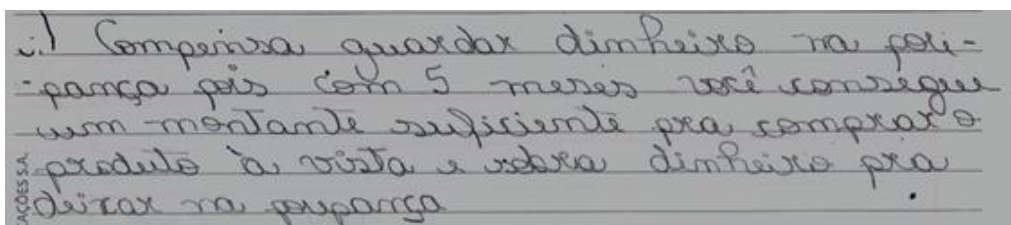 i.) Compensa guardar dinheiro na pou-
-pança pois com 5 meses você consegue
um montante suficiente pra comprar o
produto à vista e sobra dinheiro pra
deixar na poupança.
AÇÕES S.A.